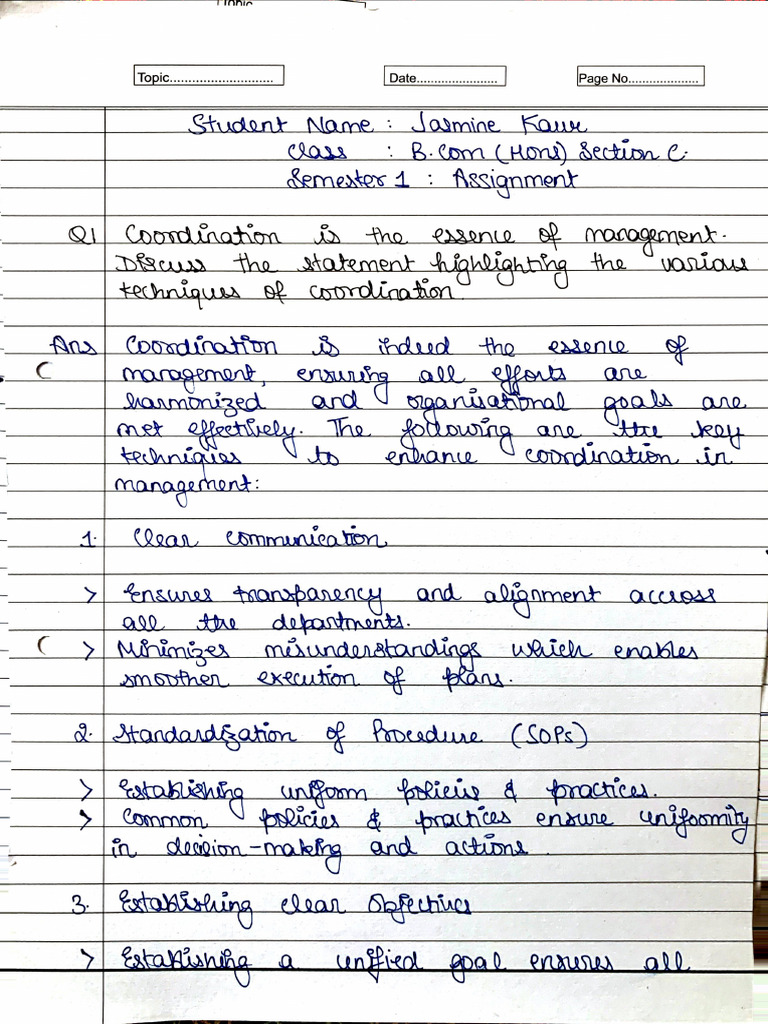 Topic............................ Date...................... Page No...................
Student Name : Jasmine Kaur
Class : B.Com (Hons) Section C.
Semester 1 : Assignment
Q1 Coordination is the essence of management.
Discuss the statement highlighting the various
techniques of coordination.
Ans Coordination is indeed the essence of
management, ensuring all efforts are
harmonized and organisational goals are
met effectively. The following are the key
techniques to enhance coordination in
management:
1. Clear communication
> Ensures transparency and alignment accross
all the departments.
> Minimizes misunderstandings which enables
smoother execution of plans.
2. Standardization of Procedure (SOPs)
> Establishing uniform policies & practices.
> Common policies & practices ensure uniformity
in decision-making and actions.
3. Establishing clear Objectives
> Establishing a unified goal ensures all